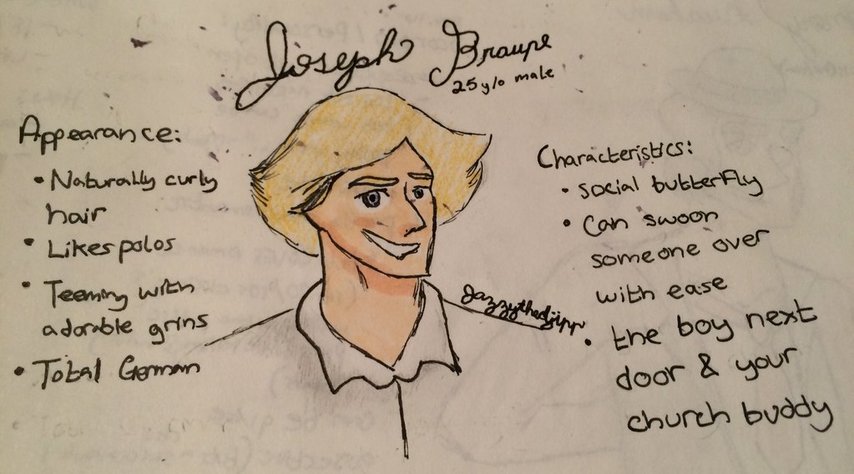 Joseph Braupe
25 y/o male
Appearance:
• Naturally curly
hair
• Likes polos
• Teeming with
adorable grins
• Total German
Characteristics:
• social butterfly
• Can swoon
someone over
with ease
• the boy next
door & your
church buddy